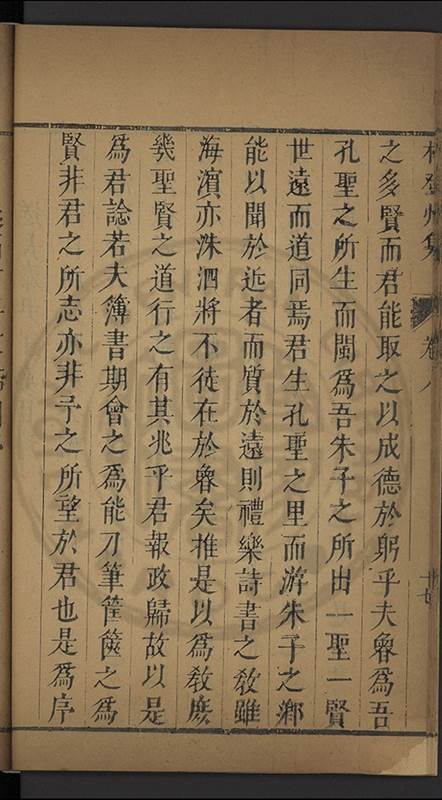 林登州集 卷八
之多賢而君能取之以成德於躬乎夫魯爲吾
孔聖之所生而閩爲吾朱子之所出一聖一賢
世遠而道同焉君生孔聖之里而游朱子之鄉
能以聞於近者而質於遠則禮樂詩書之敎雖
海濱亦洙泗將不徒在於魯矣推是以爲敎庶
幾聖賢之道行之有其兆乎君報政歸故以是
爲君諗若夫簿書期會之爲能刀筆筐篋之爲
賢非君之所志亦非予之所望於君也是爲序